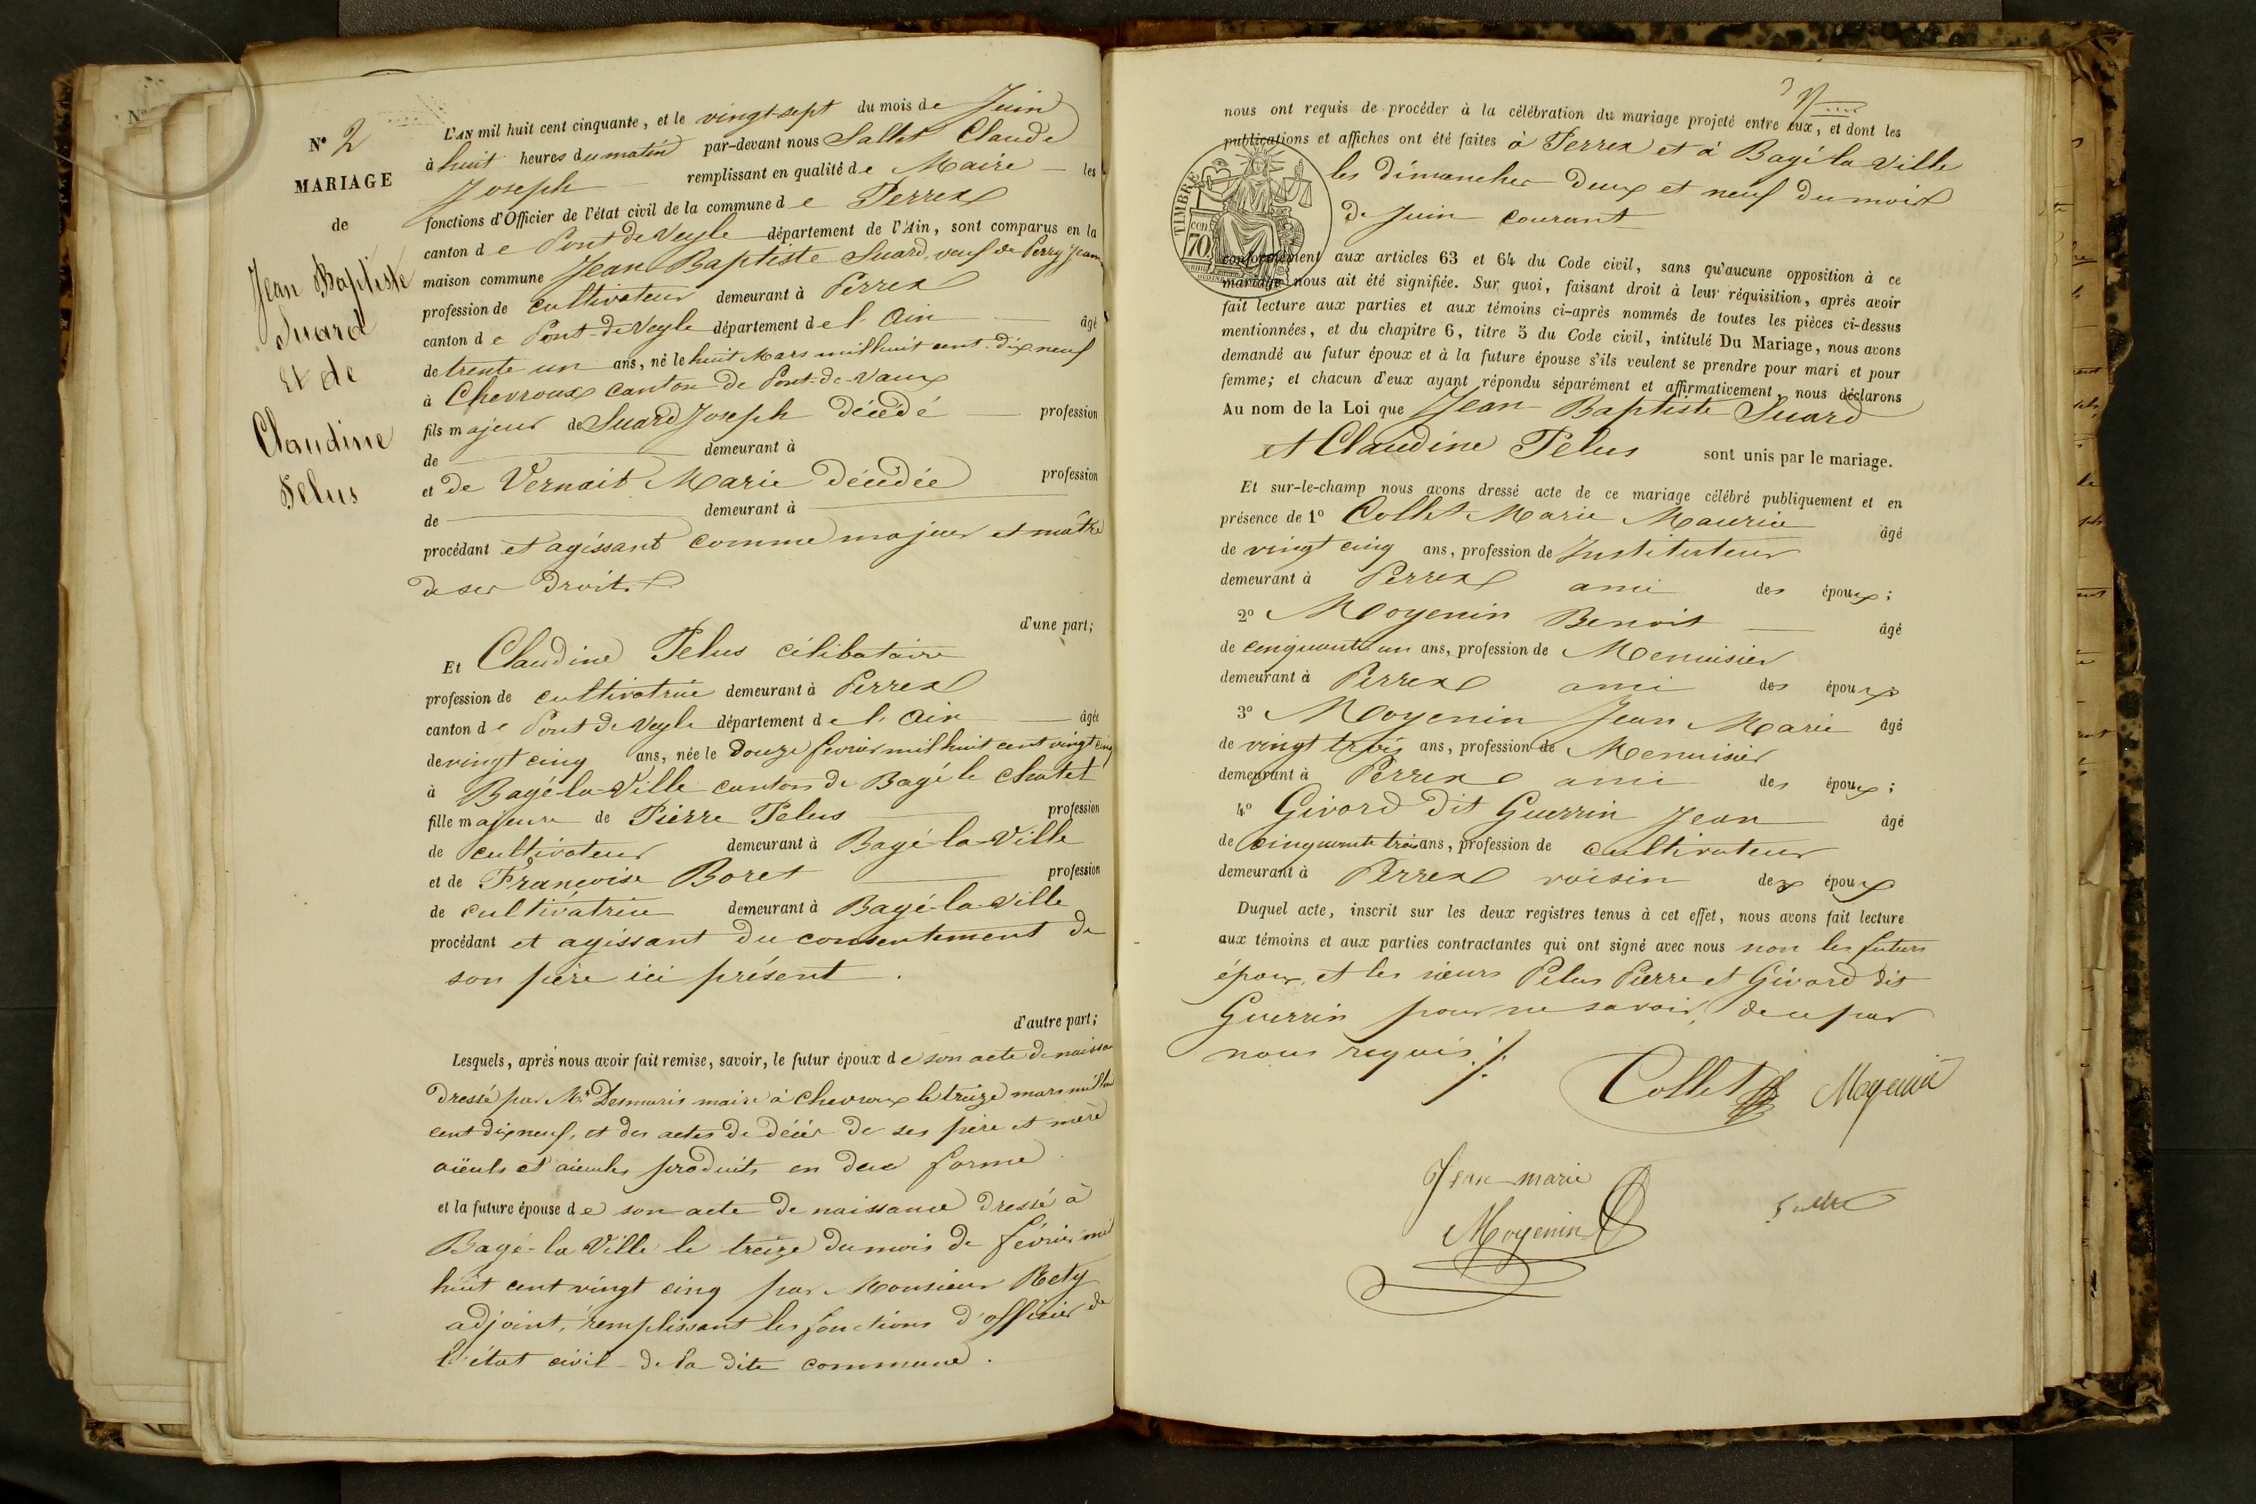 N° 2
MARIAGE
de
Jean Baptiste
Suard
Et de
Claudine
Pelus
L'AN mil huit cent cinquante, et le vingt-sept du mois de Juin
à huit heures du matin par-devant nous Sallet Claude
Joseph remplissant en qualité de Maire les
fonctions d'Officier de l'état civil de la commune de Perrex
canton de Pont de Veyle département de l'Ain, sont comparus en la
maison commune Jean Baptiste Suard, veuf de Perry Jeanne
profession de cultivateur demeurant à Perrex
canton de Pont-de-Veyle département de l'Ain âgé
de trente un ans, né le huit Mars mil huit cent dix neuf
à Chevroux canton de Pont-de-Vaux
fils majeur de Suard Joseph décédé profession
de demeurant à
et de Vernait Marie décédée profession
de demeurant à
procédant et agissant comme majeur et maître
de ses droits
d'une part;
Et Claudine Pelus célibataire
profession de cultivatrice demeurant à Perrex
canton de Pont de Veyle département de l'Ain âgée
de vingt cinq ans, née le douze février mil huit cent vingt cinq
à Bagé-la-Ville canton de Bagé le chatel
fille majeure de Pierre Pelus profession
de cultivateur demeurant à Bagé-la-Ville
et de Françoise Boret profession
de cultivatrice demeurant à Bagé-la-Ville
procédant et agissant du consentement de
son père ici présent.
d'autre part;
Lesquels, après nous avoir fait remise, savoir, le futur époux de son acte de naissan
dressé par Mr Desmaris maire à Chevroux le treize mars mil huit
cent dix neuf, et des actes de décès de ses père et mère
aïeuls et aïeules produits en due forme
et la future épouse de son acte de naissance dressé à
Bagé-la Ville le treize du mois de février mil
huit cent vingt cinq par Monsieur Rety
adjoint, remplissant les fonctions d'officier de
l'état civil de la dite commune.
nous ont requis de procéder à la célébration du mariage projeté entre eux, et dont les
publications et affiches ont été faites à Perrex et à Bagé-la-Ville
les dimanches deux et neuf du mois
de Juin courant
TIMBRE
cen
70
conformément aux articles 63 et 64 du Code civil, sans qu'aucune opposition à ce
mariage nous ait été signifiée. Sur quoi, faisant droit à leur réquisition, après avoir
fait lecture aux parties et aux témoins ci-après nommés de toutes les pièces ci-dessus
mentionnées, et du chapitre 6, titre 5 du Code civil, intitulé Du Mariage, nous avons
demandé au futur époux et à la future épouse s'ils veulent se prendre pour mari et pour
femme; et chacun d'eux ayant répondu séparément et affirmativement, nous déclarons
Au nom de la Loi que Jean Baptiste Suard
et Claudine Pelus sont unis par le mariage.
Et sur-le-champ nous avons dressé acte de ce mariage célébré publiquement et en
présence de 1° Collet Marie Maurice âgé
de vingt cinq ans, profession de Instituteur
demeurant à Perrex ami des époux;
2° Moyenin Benoit âgé
de cinquante un ans, profession de Menuisier
demeurant à Perrex ami des époux;
3° Moyenin Jean Marie âgé
de vingt trois ans, profession de Menuisier
demeurant à Perrex ami des époux;
4° Givord dit Guerrin Jean âgé
de cinquante trois ans, profession de cultivateur
demeurant à Perrex voisin des époux
Duquel acte, inscrit sur les deux registres tenus à cet effet, nous avons fait lecture
aux témoins et aux parties contractantes qui ont signé avec nous non les futurs
époux, et les sieurs Pelus Pierre et Givord dit
Guerrin pour ne savoir, de ce par
nous requis
Collet Moyenin
Jean marie
Moyenin
Sallet